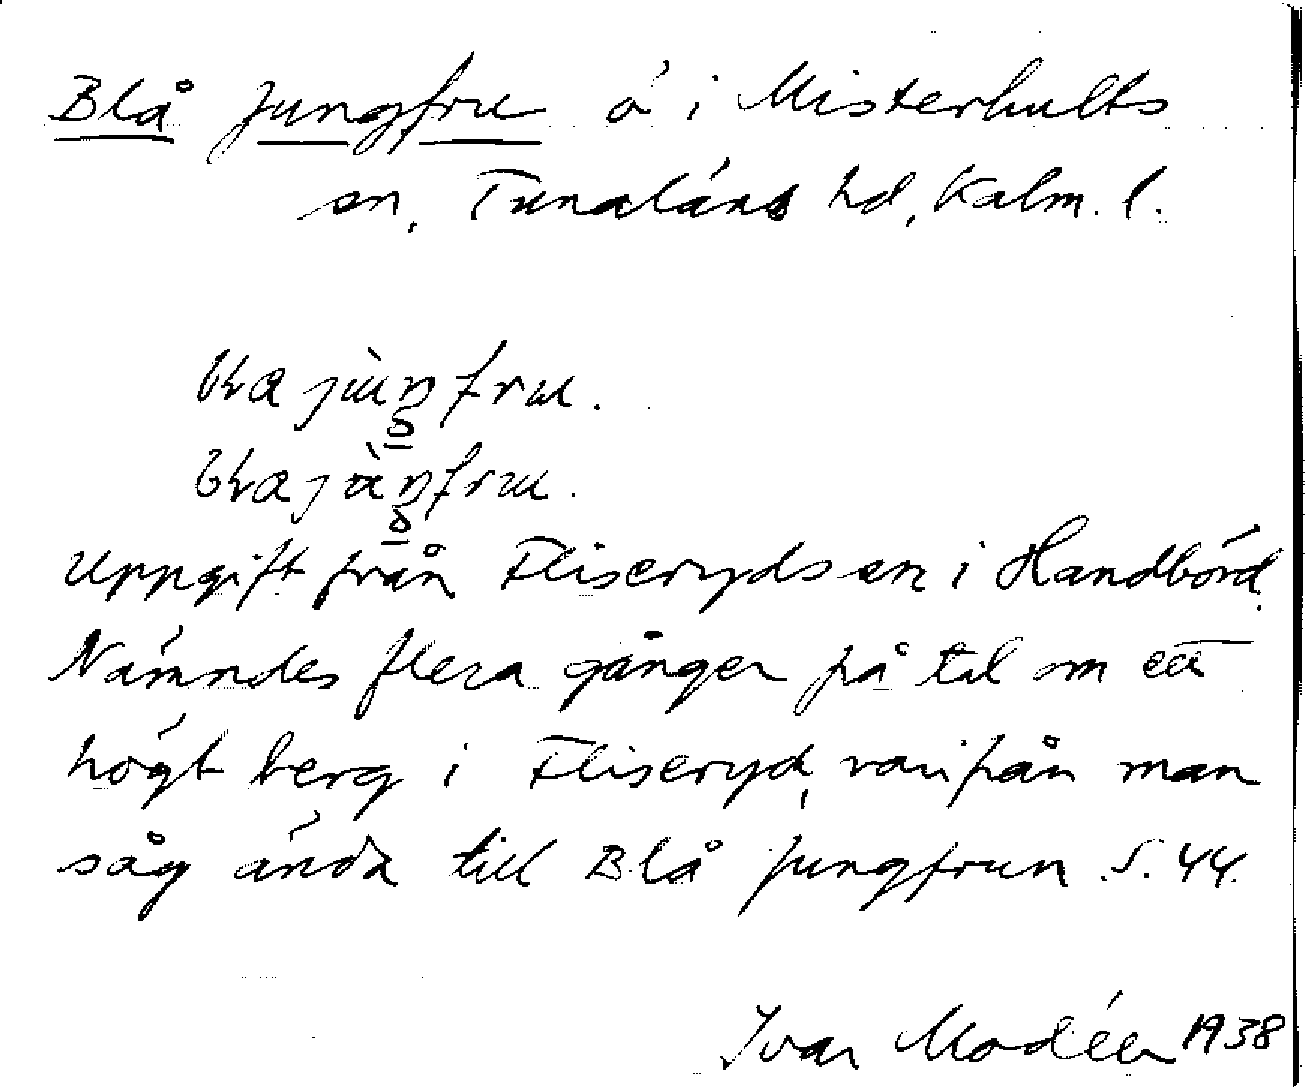 Blå Jungfru ö i Misterhults
sn, Tunaläns hd, Kalm. l.
Uppgift från Fliseryds sn i Handbörd.
Nämndes flera gånger på tal om ett
högt berg i Fliseryd, varifrån man
såg ända till Blå Jungfrun S. 44.
Ivar Modéer 1938